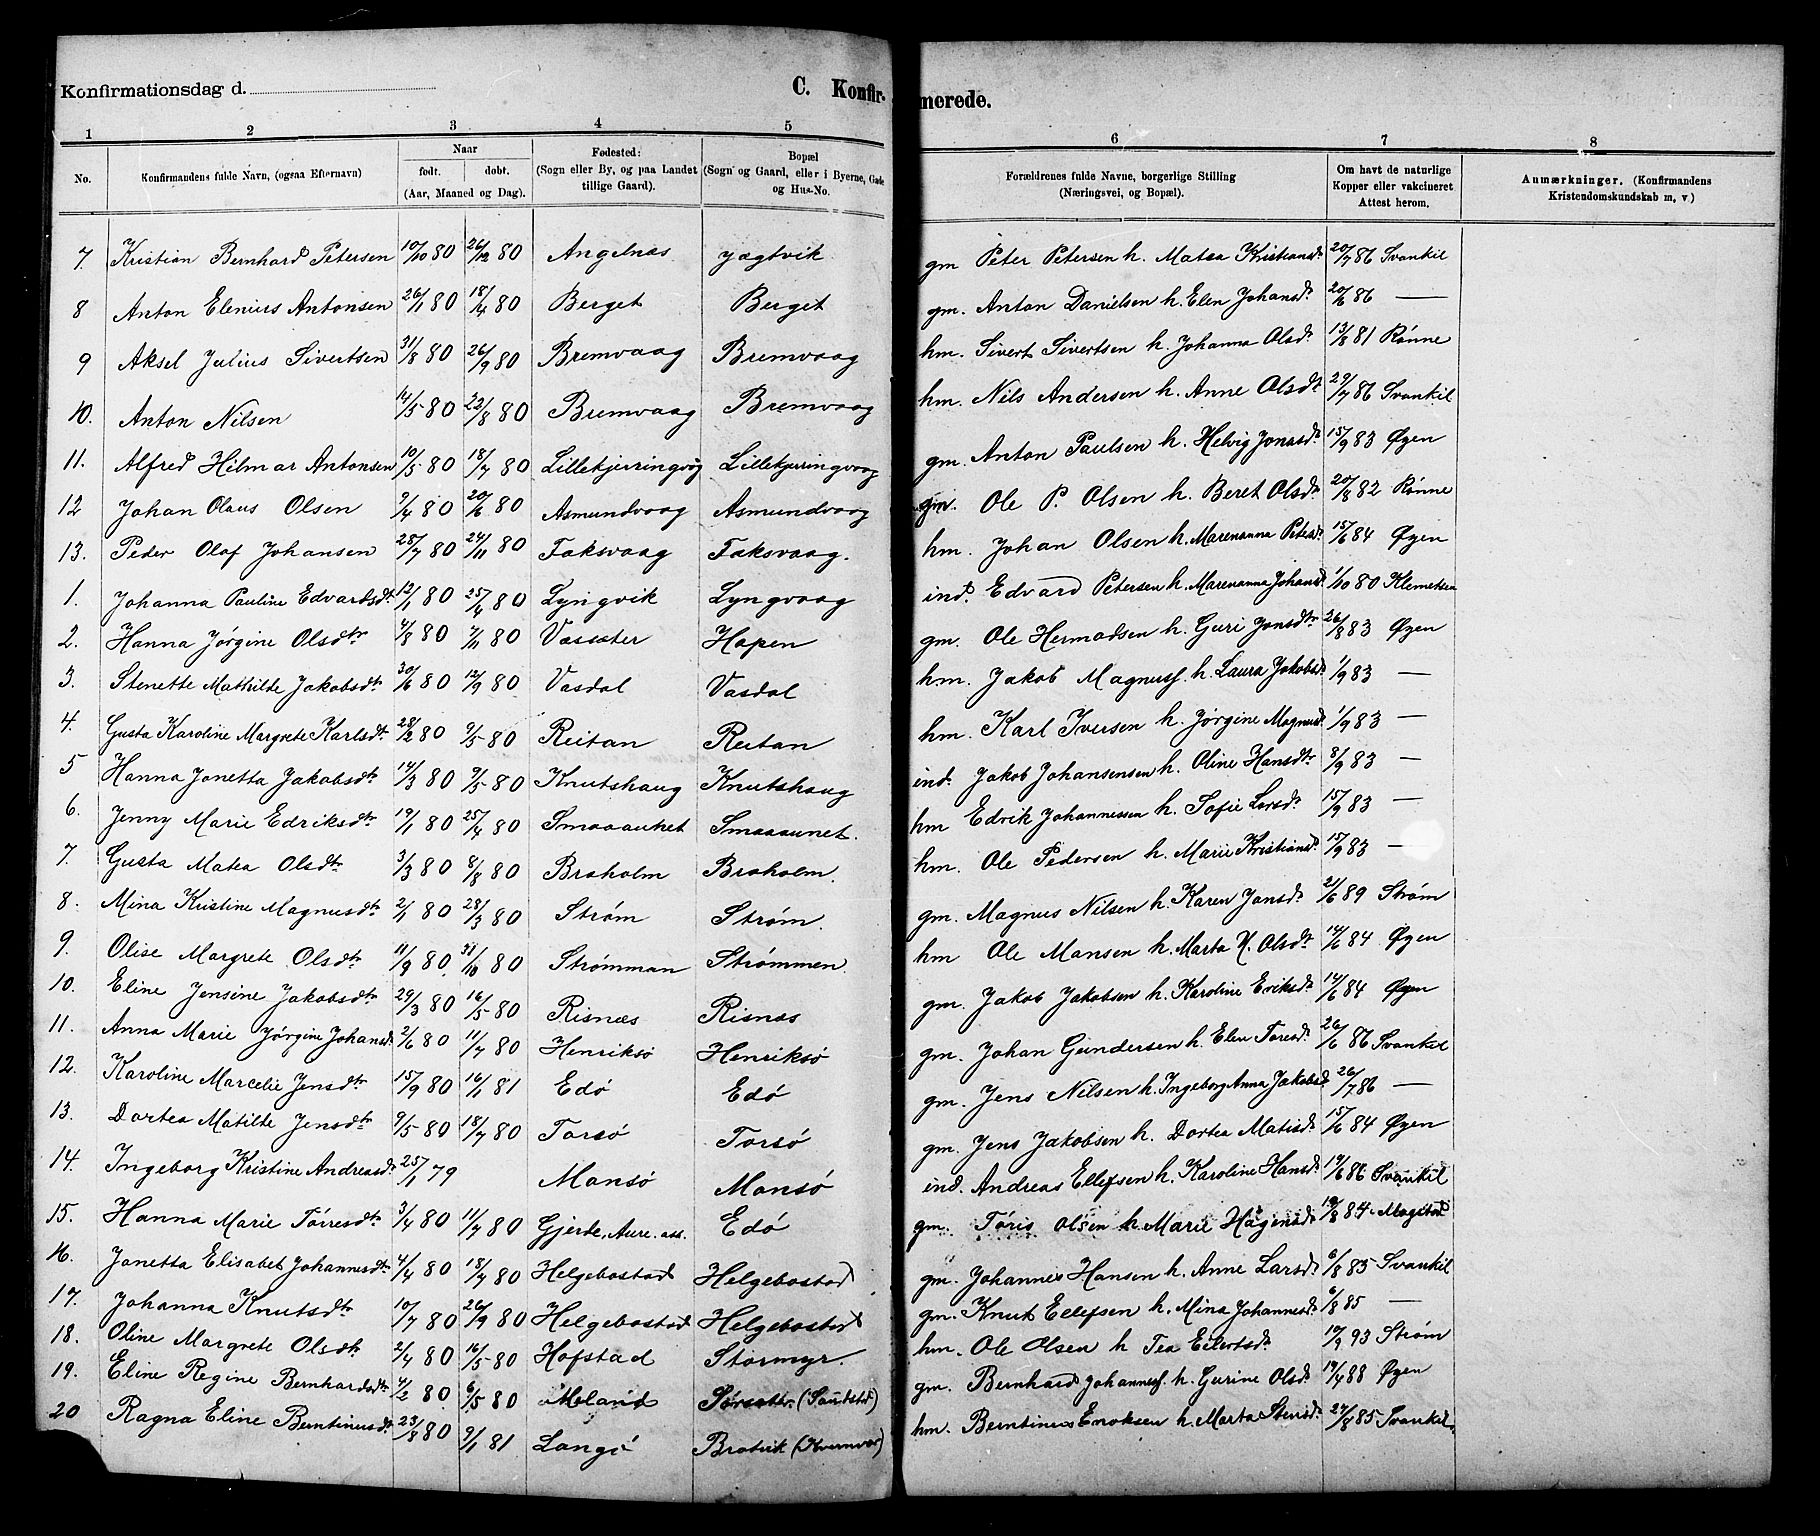 Konfirmationsdag d. C. Konfirmerede.
1 2 3 4 5 6 7 8
No. Konfirmandens fulde Navn, (ogsaa Efternavn) Naar født. døbt. (Aar, Maaned og Dag). Fødested: (Sogn eller By, og paa Landet tillige Gaard). Bopæl (Sogn og Gaard, eller i Byerne, Gade og Hus-No. Forældrenes fulde Navne, borgerlige Stilling (Næringsvei, og Bopæl). Om havt de naturlige Kopper eller vakcineret Attest herom. Anmærkninger. (Konfirmandens Kristendomskundskab m. v.)
7. Kristian Bernhard Petersen 10/10 80 26/12 80 Angelnæs Jægtvik gm Peter Petersen h. Matea Kristiansd. 20/7 86 Svankil
8 Anton Elenius Antonsen 26/1 80 18/4 80 Berget Berget gm. Anton Danielsen h. Elen Johansd. 20/6 86 —
9 Aksel Julius Sivertsen 31/8 80 26/9 80 Bremvaag Bremvaag hm. Sivert Sivertsen h. Johanna Olsd. 13/8 81 Rønne
10. Anton Nilsen 14/5 80 22/8 80 Bremvaag Bremvaag hm. Nils Andersen h. Anne Olsdt. 29/7 86 Svankil
11. Alfred Hilmar Antonsen 10/5 80 18/7 80 Lillekjerringvåg Lillekjerringvaag gm. Anton Paulsen h. Helvig Jonasd. 15/9 83 Øyen
12 Johan Olaus Olsen 9/4 80 20/6 80 Asmundvaag Asmundvaag gm. Ole P. Olsen h. Beret Olsdt. 20/8 82 Rønne
13. Peder Olaf Johansen 28/7 80 24/11 80 Faksvaag Faksvaag. hm. Johan Olsen h. Marenanna Petersd. 15/6 84 Øyen
1. Johanna Pauline Edvardsdt. 12/1 80 25/4 80 Lyngvik Lyngvaag ind. Edvard Petersen h. Marenanna Johansd. 1/10 80 Klemetsen
2. Hanna Jørgine Olsdtr 4/8 80 7/11 80 Vasseter Hopen gm. Ole Hermodsen h. Guri Jonsdtr 26/8 83 Øyen
3. Stenette Mathilde Jakobsdtr 30/6 80 12/9 80 Vasdal Vasdal hm. Jakob Magnuss. h. Laura Jakobsd. 1/9 83 —
4. Gusta Karoline Margrete Karlsdtr 28/2 80 9/5 80 Reitan Reitan hm. Karl Iversen h. Jørgine Magnusd. 1/9 83 —
5 Hanna Jonetta Jakobsdtr 14/3 80 9/5 80 Knutshaug Knutshaug ind. Jakob Johansensen h. Oline Hansdtr 8/9 83 —
6. Jenny Marie Edriksdtr 19/1 80 25/4 80 Smaaaunet Smaaaunet. hm Edrik Johannessen h. Sofie Larsd. 15/9 83 —
7. Gusta Matea Olsdtr 3/3 80 8/8 80 Braholm Braholm. hm. Ole Pedersen h. Marie Kristiansd. 15/9 83 —
8. Mina Kristine Magnusdtr 2/1 80 28/3 80 Strøm Strøm. gm. Magnus Nilsen h. Karen Jonsd. 21/6 89 Strøm
9. Olise Margrete Olsdtr 11/9 80 31/10 80 Strømman Strømmen. hm Ole Mansen h. Marta N. Olsdt. 14/6 84 Øyen
10. Eline Jensine Jakobsdtr 29/3 80 16/5 80 Risnæs Risnæs gm. Jakob Jakobsen h. Karoline Eriksd. 14/6 84 Øyen
11. Anna Marie Jørgine Johansd. 2/6 80 11/7 80 Henriksø Henriksø gm. Johan Gundersen h. Elen Toresd. 26/6 86 Svankil
12. Karoline Marcelie Jensdtr 15/9 80 16/1 81 Edø Edø gm. Jens Nilsen h. Ingeborg Anna Jakobsd. 26/7 86 —
13. Dortea Matilde Jensdtr 9/5 80 18/7 80 Torsø Torsø gm. Jens Jakobsen h. Dortea Matisd. 15/6 84 Øyen
14. Ingeborg Kristine Andreasd. 25/1 79 Mansø Mansø ind. Andreas Ellefsen h. Karoline Hansd. 19/6 86 Svankil
15. Hanna Marie Tørresdtr 3/4 80 11/7 80 Gjerde, Aure. Edø gm. Tøris Olsen h. Marie Hågensd. 19/8 84
16. Jonetta Elisabet Johannesdtr 4/4 80 18/7 80 Helgebostad Helgebostad gm. Johannes Hansen h. Anne Larsd. 6/8 85 Svankil
17. Johanna Knutsdtr 10/7 80 26/9 80 Helgebostad Helgebostad gm. Knut Ellefsen h. Mina Johannesd. 6/8 85 —
18. Oline Margrete Olsdtr 2/4 80 16/5 80 Hofstad Stormyr. hm. Ole Olsen h Tea Eilertsd. 19/9 93 Strøm
19. Eline Regine Bernhardsdtr 4/2 80. 6/5 80 Meland Sørsæter. (Sandstad) gm. Bernhard Johanness. h. Gurine Olsd. 19/4 88 Øyen
20 Ragna Eline Berntinusdt. 23/8 80 9/1 81 Langø Bratvik hm. Berntinus Enoksen h. Marta Stensd. 27/8 85 Svankil